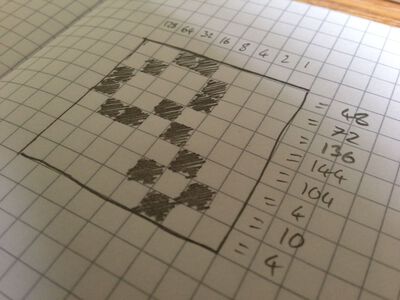 128 64 32 16 8 4 2 1
= 48
= 72
= 136
= 144
= 104
= 4
= 10
= 4